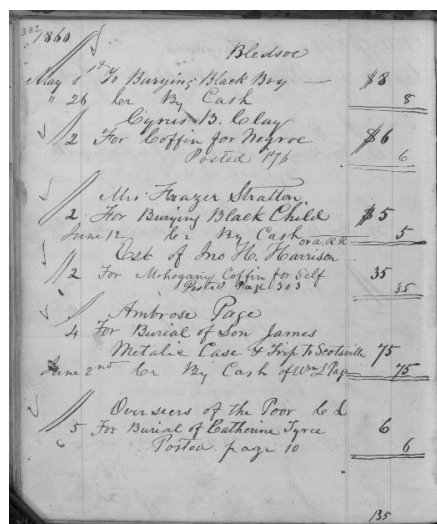 332
1860
Bledsoe
May 1st To Burying Black Boy — $8
" 26 Cr By Cash 8
Cyrus B. Clay
" 2 For Coffin for Negroe $6
Posted 176 6
Mrs Frazer Stratton
" 2 For Burying Black Child $5
June 12 Cr By Cash 5
Est of Jno H. Harrison
" 2 For Mohogany Coffin for Self 35
Posted Page 303 35
Ambrose Page
4 For Burial of Son James
Metalic Case & Trip to Scotsville 75
June 2nd Cr By Cash of Wm L Page 75
Overseers of the Poor
" 5 For Burial of Catherine Tyree 6
Posted page 10 6
135